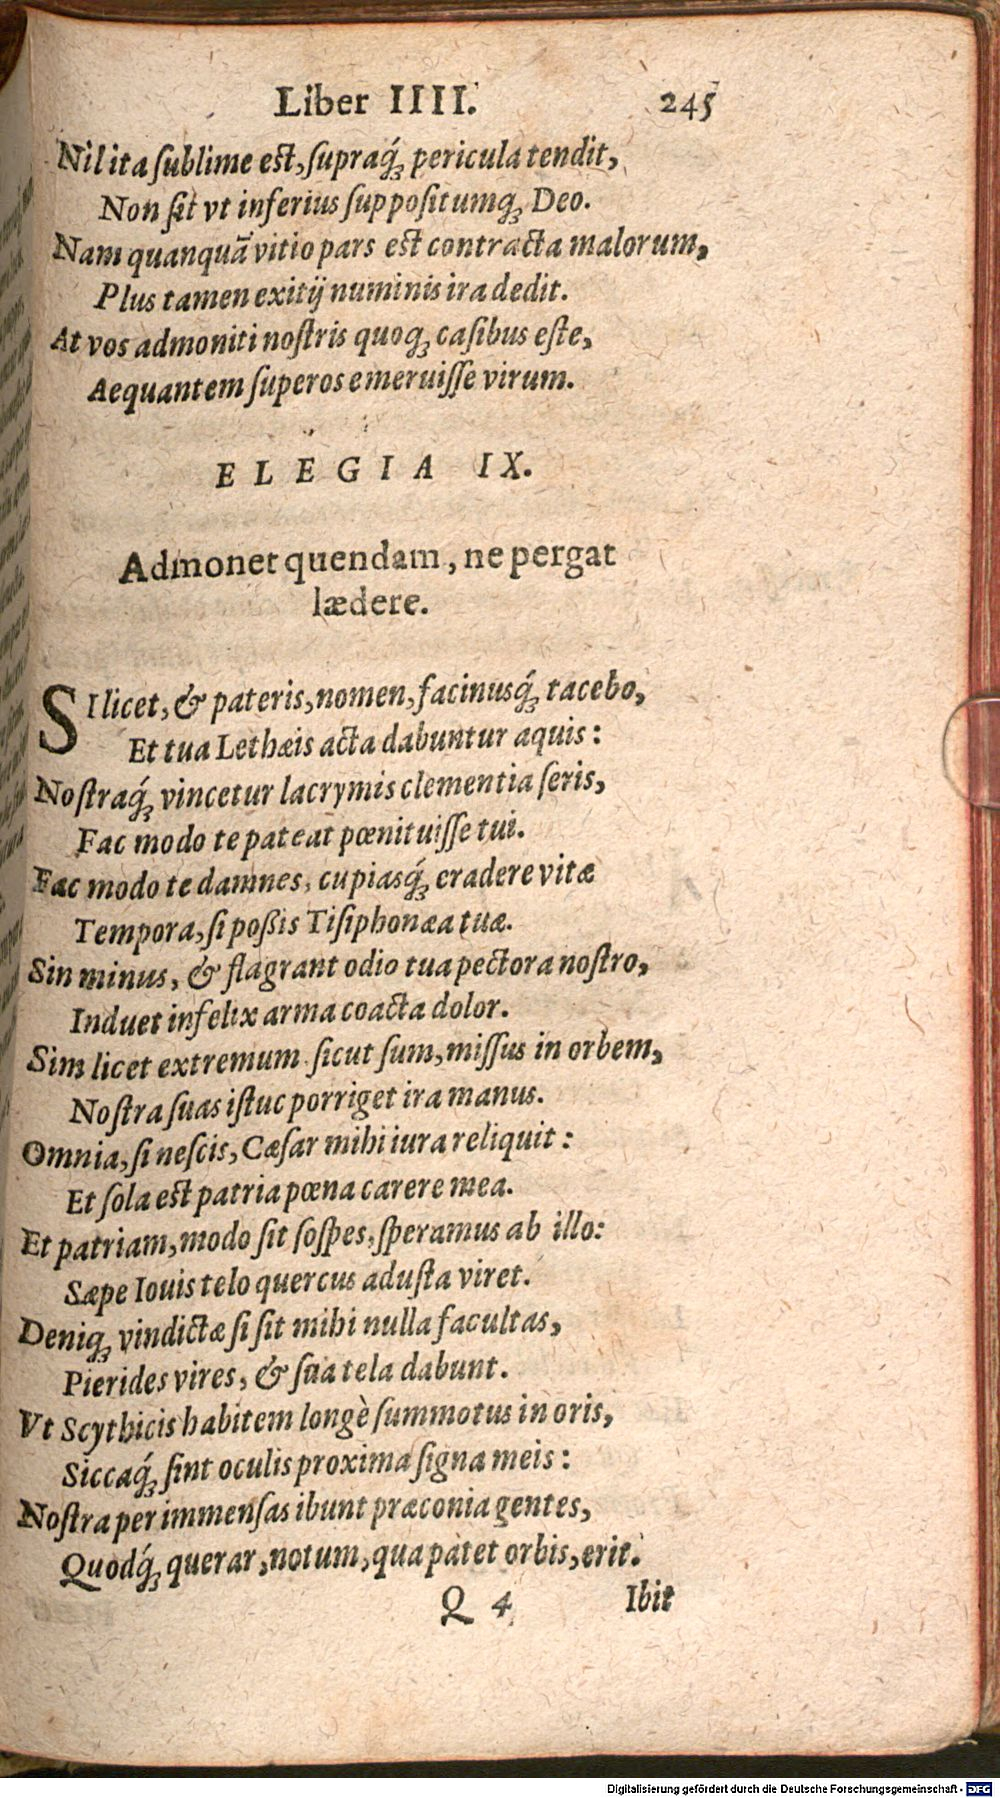 Liber IIII. 245
Nil ita ſublime eſt, ſupraq́ꝫ pericula tendit,
Non ſit vt inferius ſuppoſitumqꝫ Deo.
Nam quanquā vitio pars eſt contracta malorum,
Plus tamen exitij numinis ira dedit.
At vos admoniti noſtris quoqꝫ caſibus eſte,
Aequantem ſuperos emeruiſſe virum.
ELEGIA IX.
Admonet quendam, ne pergat
lædere.
SI licet, & pateris, nomen, facinusq́ꝫ tacebo,
Et tua Lethæis acta dabuntur aquis:
Noſtraq́ꝫ vincetur lacrymis clementia ſeris,
Fac modo te pateat pœnituiſſe tui.
Fac modo te damnes, cupiasq́ꝫ eradere vitæ
Tempora, ſi poßis Tiſiphonæa tuæ.
Sin minus, & flagrant odio tua pectora noſtro,
Induet infelix arma coacta dolor.
Sim licet extremum ſicut ſum, miſſus in orbem,
Noſtra ſuas iſtuc porriget ira manus.
Omnia, ſi neſcis, Cæſar mihi iura reliquit:
Et ſola eſt patria pœna carere mea.
Et patriam, modo ſit ſoſpes, ſperamus ab illo:
Sæpe Iouis telo quercus aduſta viret.
Deniqꝫ vindictæ ſi ſit mihi nulla facultas,
Pierides vires, & ſua tela dabunt.
Vt Scythicis habitem longè ſummotus in oris,
Siccaq́ꝫ ſint oculis proxima ſigna meis:
Noſtra per immenſas ibunt præconia gentes,
Quodq́ꝫ querar, notum, qua patet orbis, erit.
Q 4 Ibit
Digitalisierung gefördert durch die Deutsche Forschungsgemeinschaft - DFG